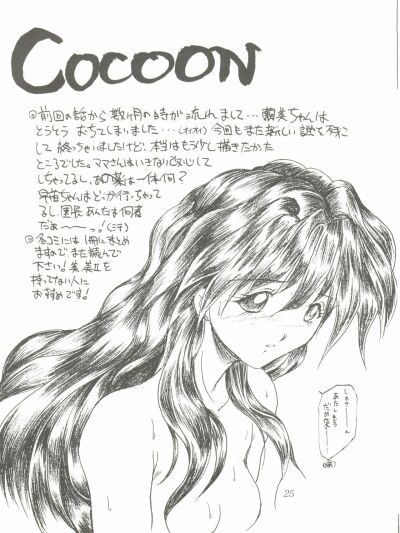 COCOON
◎前回の話から数ヶ月の時が流れまして…繭美ちゃんは
とうとうおちてしまいました…(オイオイ)今回もまた新しい謎を残こ
して終っちゃいましたけど、本当はもう少し描きたかった
ところでした。ママさんはいきなり改心して
しちゃってるし、あの薬は一体何？
早苗ちゃんはどっか行っちゃって
るし、園長あんたは何者
だぁ〜〜っ！
には1冊にまとめ
ますので、また読んで
下さい！美
持ってない人に
おすすめです！
あたしもう
25